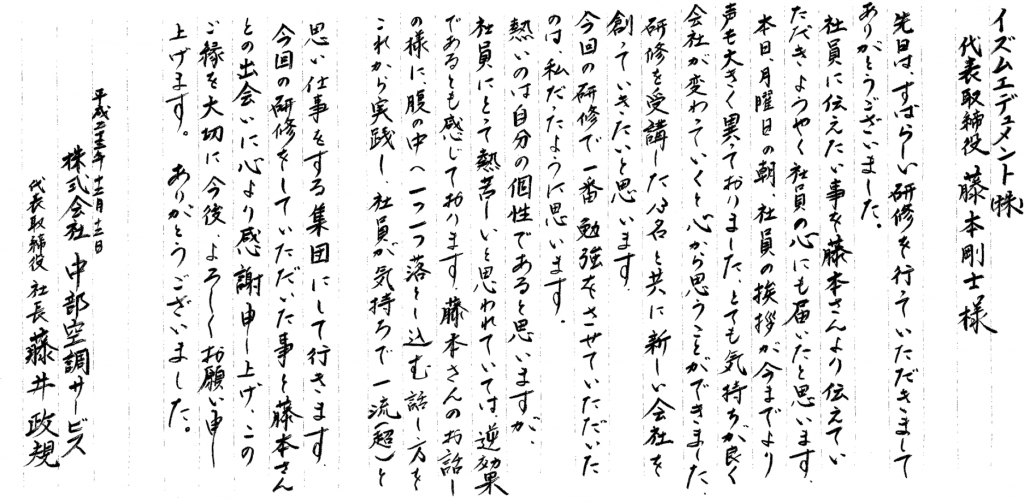 イズムエデュメント㈱
代表取締役 藤本剛士様
先日は、すばらしい研修を行っていただきまして
ありがとうございました。
社員に伝えたい事を藤本さんより伝えてい
ただきようやく社員の心にも届いたと思います
本日、月曜日の朝、社員の挨拶が今までより
声も大きく異っておりました、とても気持ちが良く
会社が変わっていくと心から思うことができました。
研修を受講した名と共に新しい会社を
創っていきたいと思います
今回の研修で一番勉強をさせていただいた
のは、私だったように思います。
熱いのは自分の個性であると思いますが、
社員にとって熱苦しいと思われていては逆効果
であるとも感じております。藤本さんのお話し
の様に、腹の中へ一つ一つ落とし込む話し方を
これから実践し、社員が気持ちで一流(超)と
思い仕事をする集団にして行きます。
今回の研修をしていただいた事と藤本さん
との出会いに心より感謝申し上げ、この
ご縁を大切に今後、よろしくお願い申し
上げます。 ありがとうございました。
平成二十五年十二月十二日
株式会社 中部空調サービス
代表取締役 社長 藤井政規